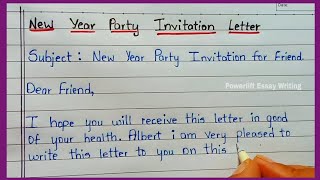 Date
New Year Party Invitation Letter
Subject : New Year Party Invitation for Friend.
Dear Friend,
Powerlift Essay Writing
I hope you will receive this letter in good
of your health. Albert i am very pleased to
write this letter to you on this